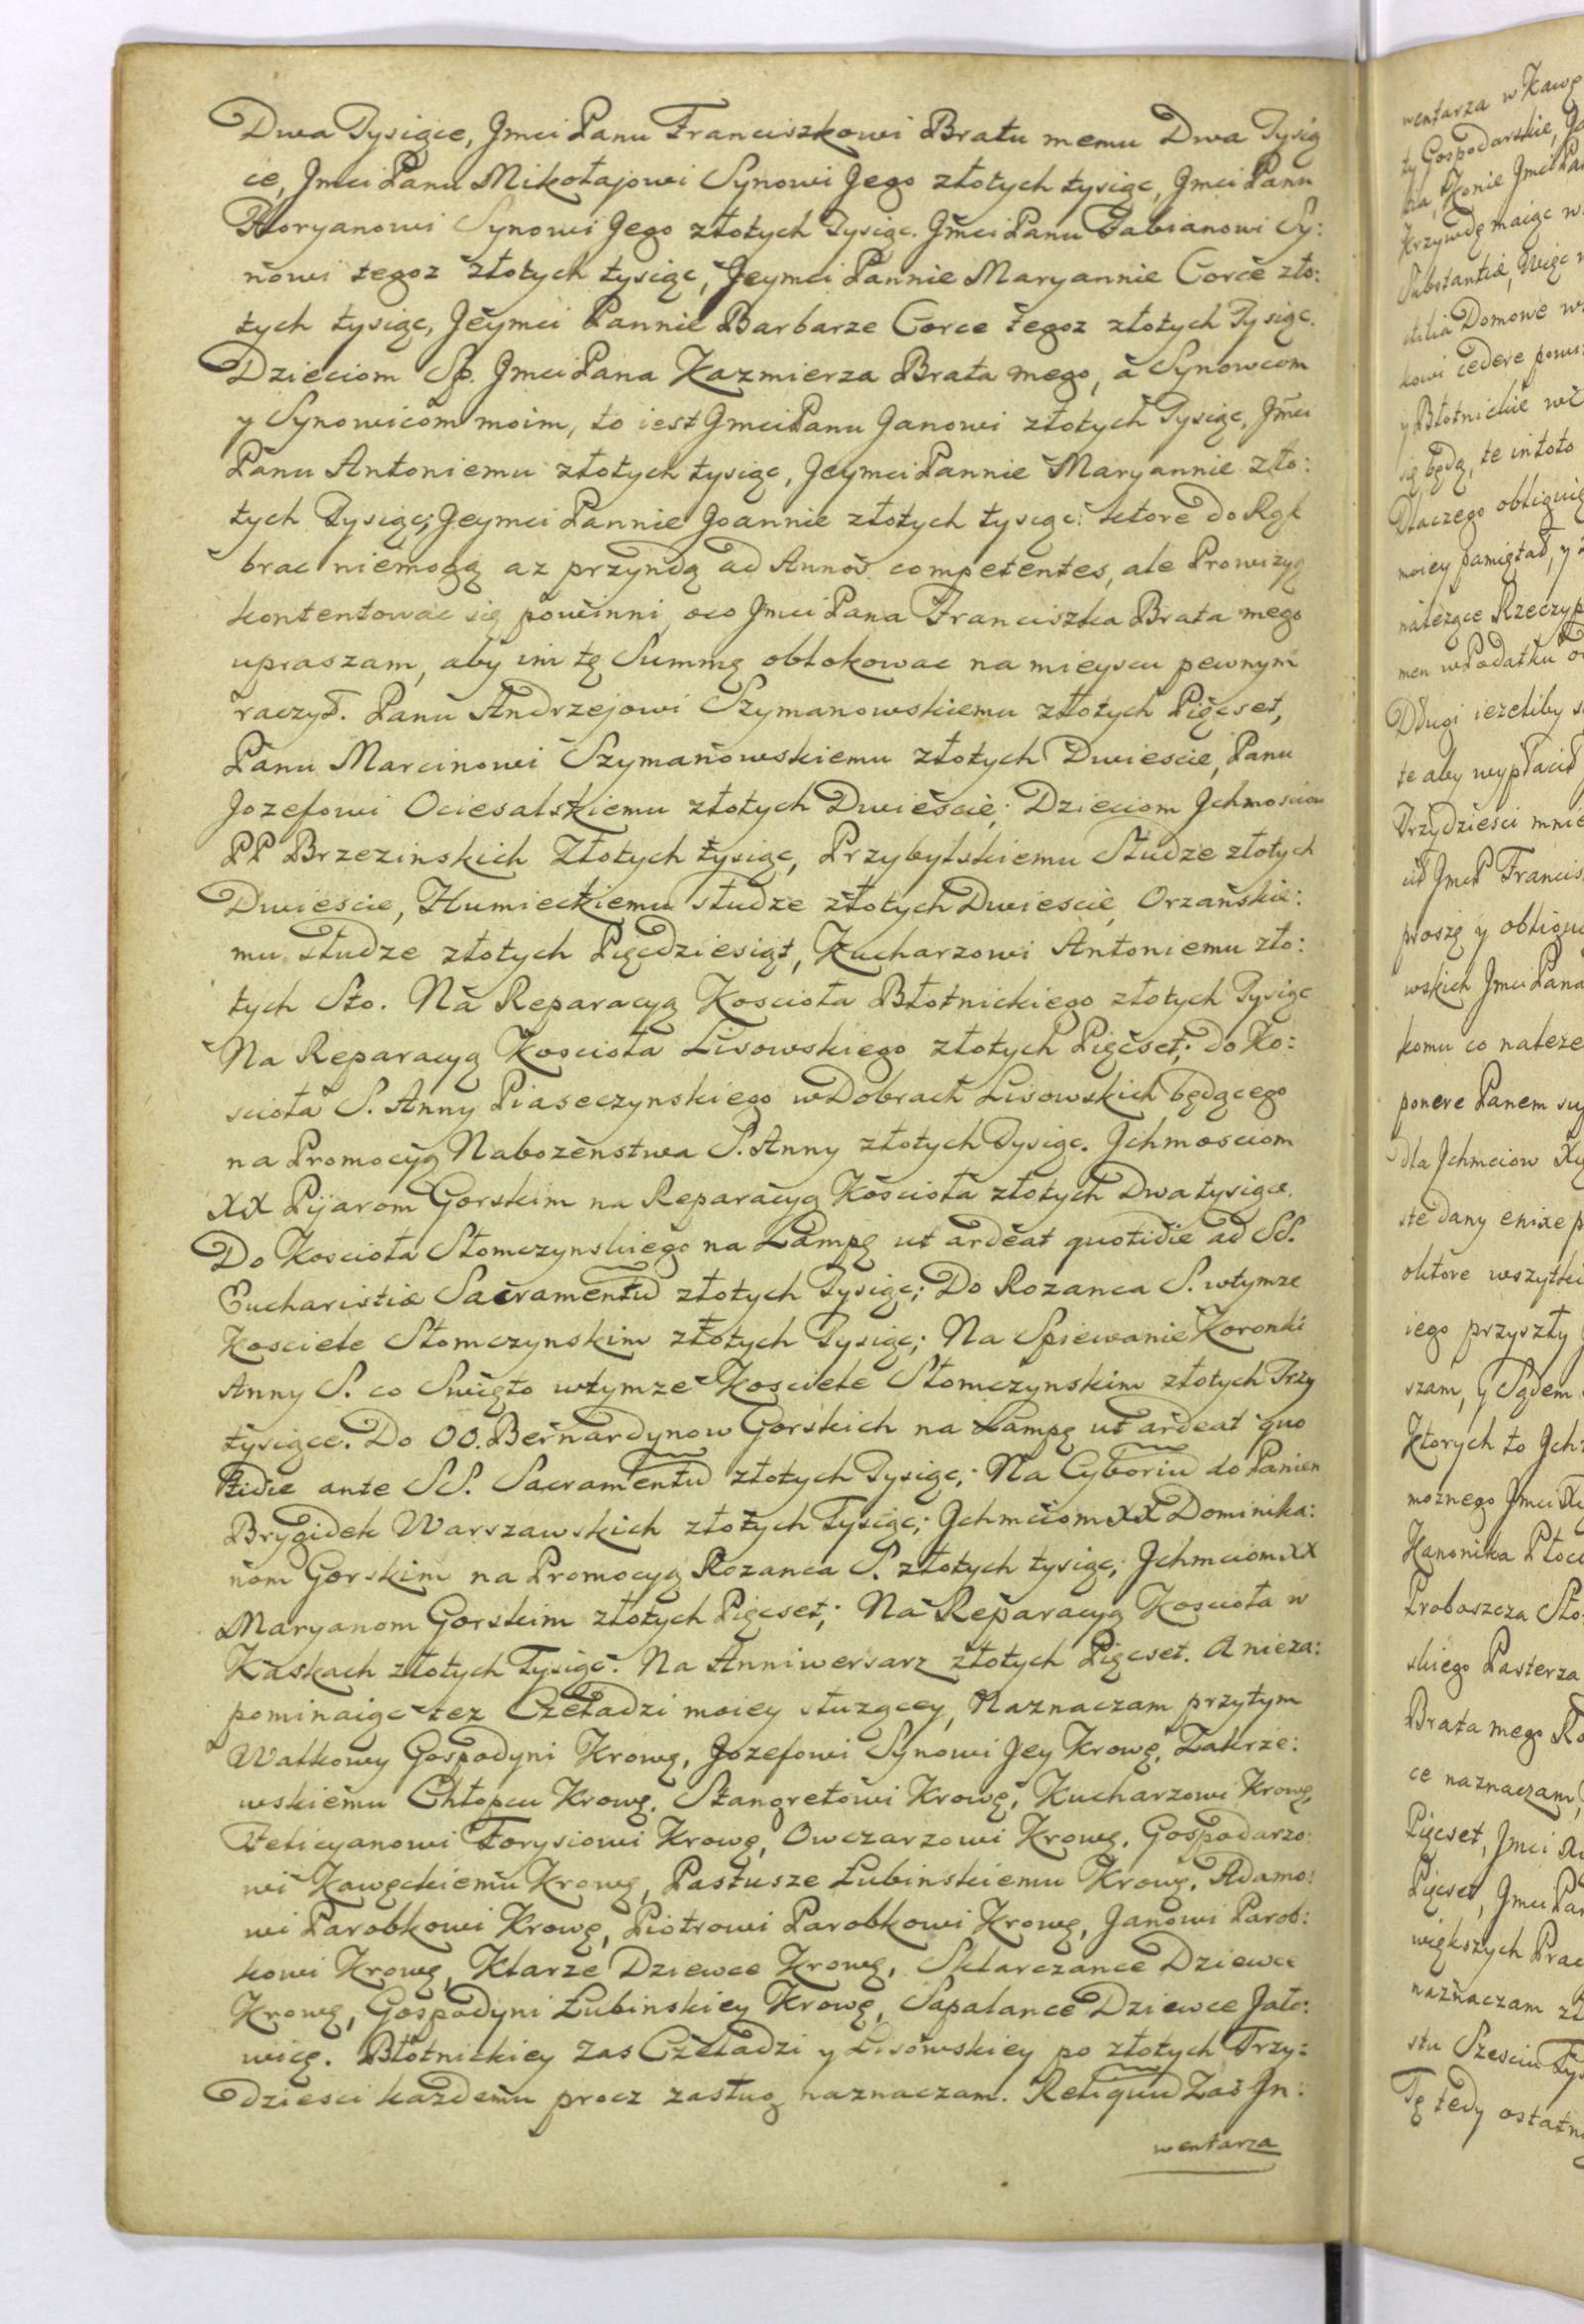 Dwa Tysiące, Jmci Panu Franciszkowi Bratu memu Dwa Tysią
ce, Jmci Panu Mikołajowi Synowi Jego złotych tysiąc, Jmci Panu
Floryanowi Synowi Jego złotych Tysiąc. Jmci Panu Fabianowi Sy:
nowi tegoz złotych tysiąc, Jeymci Pannie Maryannie Corce zło:
tych tysiąc, Jeymci Pannie Barbarze Corce tegoz złotych Tysiąc.
Dzieciom Sp. Jmci Pana Kazmierza Brata mego, a Synowcom
y Synowicom moim, to iest Jmci Panu Janowi złotych Tysiąc, Jmci
Panu Antoniemu złotych tysiąc, Jeymci Pannie Maryannie zło:
tych Tysiąc; Jeymci Pannie Joannie złotych tysiąc: ktore do Rąk
brac niemogą az przyndą ad Annos competentes, ale Prowizyą
kontentowac się powinni, oco Jmci Pana Franciszka Brata mego
upraszam, aby im tę Summę oblokowac na mieyscu pewnym
raczył. Panu Andrzejowi Szymanowskiemu złotych Pięcset,
Panu Marcinowi Szymanowskiemu złotych Dwiescie, Panu
Jozefowi Ociesalskiemu złotych Dwiescie; Dzieciom Jchmosciom
PP Brzezinskich Złotych tysiąc, Przybylskiemu Słudze złotych
Dwiescie, Humieckiemu słudze złotych Dwiescie, Orzanskie:
mu słudze złotych Pięcdziesiąt, Kucharzowi Antoniemu zło:
tych Sto. Na Reparacyą Koscioła Błotnickiego złotych Tysiąc
Na Reparacyą Koscioła Lisowskiego złotych Pięcset; do Ko:
scioła S. Anny Piaseczynskiego w Dobrach Lisowskich będącego
na Promocyą Nabozenstwa S. Anny złotych Tysiąc. Jchmosciom
XX Pijarom Gorskim na Reparacyą Koscioła złotych Dwa tysiące.
Do Koscioła Słomczynskiego na Lampę ut ardeat quotidie ad SS.
Eucharistiæ Sacramentu złotych Tysiąc; Do Rozanca S. wtymze
Kosciele Słomczynskim złotych Tysiąc; Na Spiewanie Koronki
Anny S. co Swięto wtymze Kosciele Słomczynskim złotych Trzy
tysiące. Do OO. Bernardynow Gorskich na Lampę ut ardeat quo
tidie ante SS. Sacramentu złotych Tysiąc; Na Cyboriu do Panien
Brygidek Warszawskich złotych Tysiąc; Jchmciom XX Dominika:
nom Gorskim na Promocyą Rozanca S. złotych tysiąc; Jchmciom XX
Maryanom Gorskim złotych Pięcset; Na Reparacyą Koscioła w
Kaskach złotych Tysiąc. Na Anniwersarz złotych Pięcset. A nieza:
pominaiąc tez Czeladzi moiey słuzącey, Naznaczam przytym
Walkowy Gospodyni Krowę, Jozefowi Synowi Jey Krowę, Zakrze:
wskiemu Chłopcu Krowę. Stangretowi Krowę, Kucharzowi Krowę,
Felicyanowi Forysiowi Krowę, Owczarzowi Krowę, Gospodarzo:
wi Kawęckiemu Krowę, Pastusze Łubinskiemu Krowę, Adamo:
wi Parobkowi Krowę, Piotrowi Parobkowi Krowę, Janowi Parob:
kowi Krowę, Klarze Dziewce Krowę, Sklarczance Dziewce
Krowę, Gospodyni Łubinskiey Krowę, Sapalance Dziewce Jało:
wicę. Błotnickiey Zas Czeladzi y Lisowskiey po złotych Trzy:
dziesci kazdemu procz zasług naznaczam. Reliquu Zas Jn:
wentarza
wentarza w Kawę
ty Gospodarskie,
Konie Jmci Pa
Krzywdę maiąc w
Substantiæ, Więc
Domowe w
kowi cedere
y Błotnickie
się będą, te in toto
Dlaczego obliguię
moiey pamiętał, y
nalezące Rzeczy
men w Podatku
Długi iezeliby
te aby wypłacił
Trzydziesci mnie
Francis
proszę y obligu
wskich Jmci Pana
komu co naleze
ponere Panem
dla Jchmciow
dany enixe
oktore wszytki
iego przyszły
szam, y Sądem
Ktorych to Jch
moznego Jmci
Kanonika Płoc
Proboszcza Sło
skiego Pasterza
Brata mego
ce naznaczam,
Pięcset, Jmci
Pięcset, Jmci Pa
większych Prac
naznaczam
stu Szesciu
Tę tedy ostatn